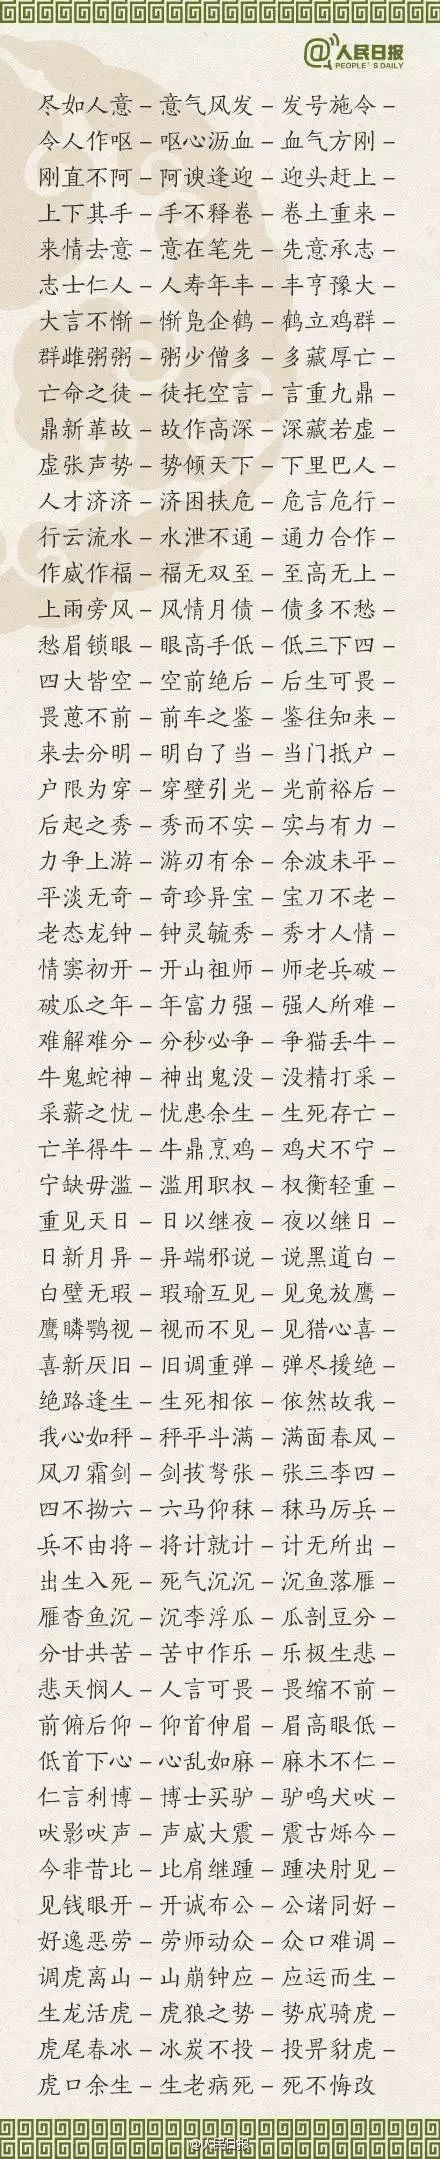 @人民日报
PEOPLE'S DAILY
尽如人意－意气风发－发号施令－
令人作呕－呕心沥血－血气方刚－
刚直不阿－阿谀逢迎－迎头赶上－
上下其手－手不释卷－卷土重来－
来情去意－意在笔先－先意承志－
志士仁人－人寿年丰－丰亨豫大－
大言不惭－惭凫企鹤－鹤立鸡群－
群雌粥粥－粥少僧多－多藏厚亡－
亡命之徒－徒托空言－言重九鼎－
鼎新革故－故作高深－深藏若虚－
虚张声势－势倾天下－下里巴人－
人才济济－济困扶危－危言危行－
行云流水－水泄不通－通力合作－
作威作福－福无双至－至高无上－
上雨旁风－风情月债－债多不愁－
愁眉锁眼－眼高手低－低三下四－
四大皆空－空前绝后－后生可畏－
畏葸不前－前车之鉴－鉴往知来－
来去分明－明白了当－当门抵户－
户限为穿－穿壁引光－光前裕后－
后起之秀－秀而不实－实与有力－
力争上游－游刃有余－余波未平－
平淡无奇－奇珍异宝－宝刀不老－
老态龙钟－钟灵毓秀－秀才人情－
情窦初开－开山祖师－师老兵破－
破瓜之年－年富力强－强人所难－
难解难分－分秒必争－争猫丢牛－
牛鬼蛇神－神出鬼没－没精打采－
采薪之忧－忧患余生－生死存亡－
亡羊得牛－牛鼎烹鸡－鸡犬不宁－
宁缺毋滥－滥用职权－权衡轻重－
重见天日－日以继夜－夜以继日－
日新月异－异端邪说－说黑道白－
白璧无瑕－瑕瑜互见－见兔放鹰－
鹰瞵鹗视－视而不见－见猎心喜－
喜新厌旧－旧调重弹－弹尽援绝－
绝路逢生－生死相依－依然故我－
我心如秤－秤平斗满－满面春风－
风刀霜剑－剑拔弩张－张三李四－
四不拗六－六马仰秣－秣马厉兵－
兵不由将－将计就计－计无所出－
出生入死－死气沉沉－沉鱼落雁－
雁杳鱼沉－沉李浮瓜－瓜剖豆分－
分甘共苦－苦中作乐－乐极生悲－
悲天悯人－人言可畏－畏缩不前－
前俯后仰－仰首伸眉－眉高眼低－
低首下心－心乱如麻－麻木不仁－
仁言利博－博士买驴－驴鸣犬吠－
吠影吠声－声威大震－震古烁今－
今非昔比－比肩继踵－踵决肘见－
见钱眼开－开诚布公－公诸同好－
好逸恶劳－劳师动众－众口难调－
调虎离山－山崩钟应－应运而生－
生龙活虎－虎狼之势－势成骑虎－
虎尾春冰－冰炭不投－投畀豺虎－
虎口余生－生老病死－死不悔改
@人民日报